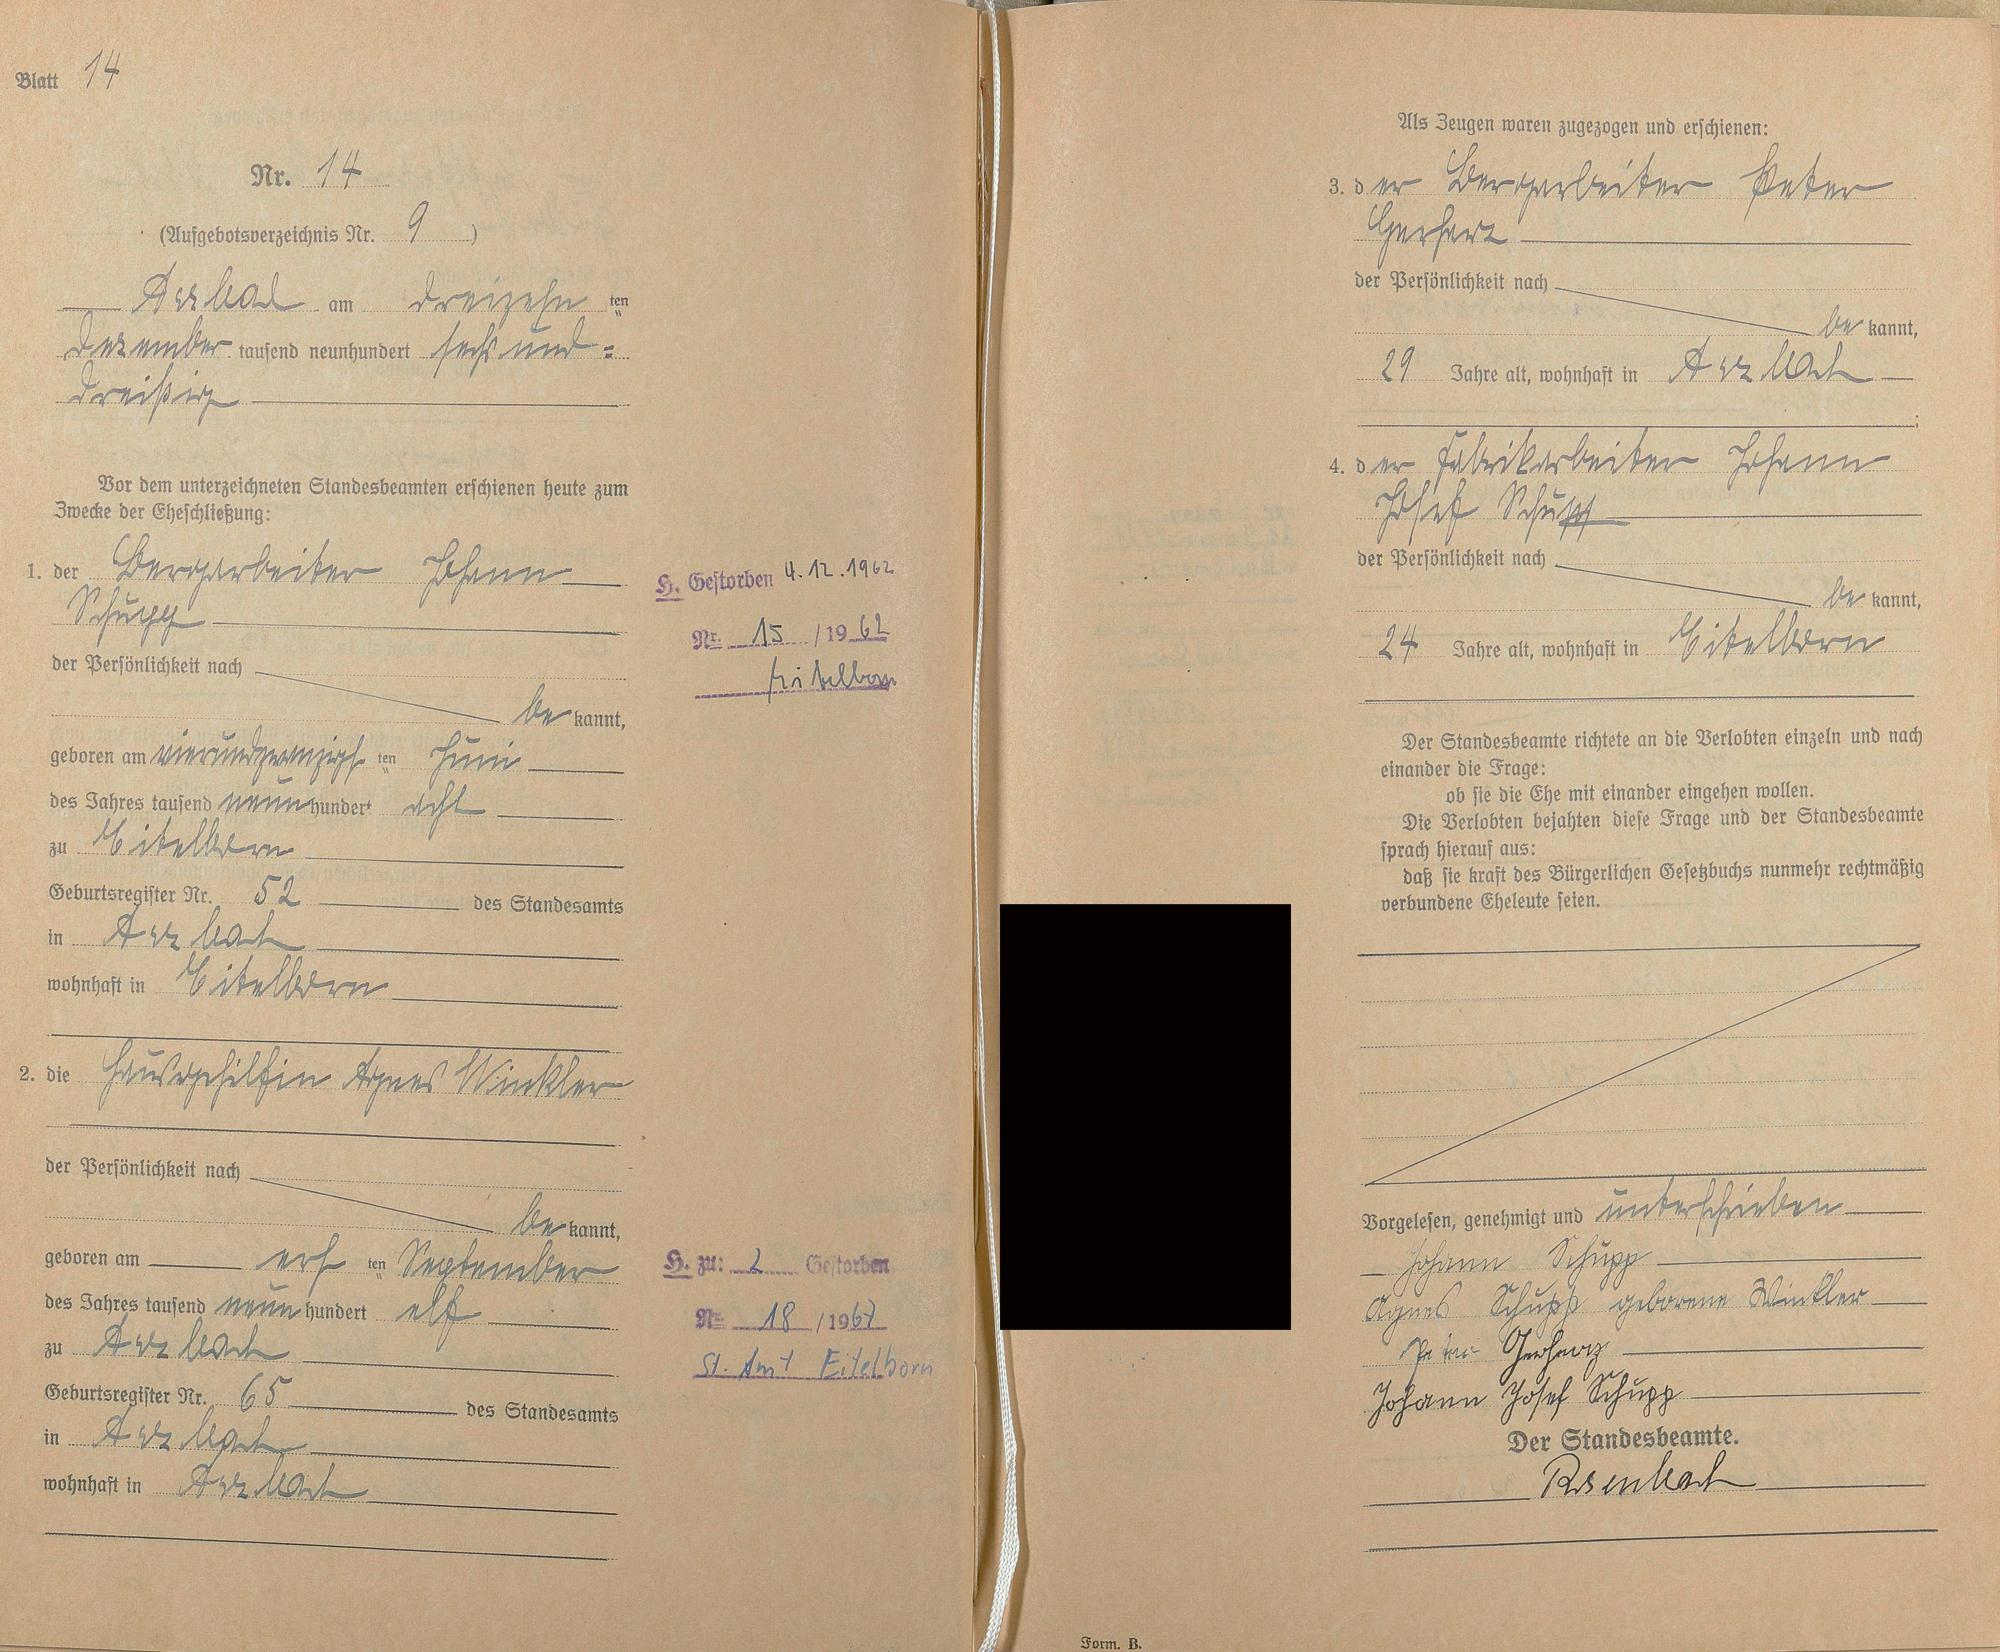 Blatt 14
Nr. 14
(Aufgebotsverzeichnis Nr. 9 )
Arzbach am dreizehn ten
Dezember tausend neunhundert sechsund=
dreißig
Vor dem unterzeichneten Standesbeamten erschienen heute zum
Zwecke der Eheschließung:
1. der Bergarbeiter Johann
Schupp
der Persönlichkeit nach
be kannt,
geboren am vierundzwanzigs ten Juni
des Jahres tausend neun hundert acht
zu Eitelborn
Geburtsregister Nr. 52 des Standesamts
in Arzbach
wohnhaft in Eitelborn
2. die Hausgehilfin Agnes Winkler
der Persönlichkeit nach
be kannt,
geboren am ers ten September
des Jahres tausend neun hundert elf
zu Arzbach
Geburtsregister Nr. 65 des Standesamts
in Arzbach
wohnhaft in Arzbach
H. Gestorben 4.12.1962
Nr. 15 /1962
Eitelborn
H. zu: 2 Gestorben
Nr. 18 /1967
St. Amt Eitelborn
Als Zeugen waren zugezogen und erschienen:
3. der Bergarbeiter Peter
Gerharz
der Persönlichkeit nach
be kannt,
29 Jahre alt, wohnhaft in Arzbach
;
4. der Fabrikarbeiter Johann
Josef Schupp
der Persönlichkeit nach
be kannt,
24 Jahre alt, wohnhaft in Eitelborn
Der Standesbeamte richtete an die Verlobten einzeln und nach
einander die Frage:
ob sie die Ehe mit einander eingehen wollen.
Die Verlobten bejahten diese Frage und der Standesbeamte
sprach hierauf aus:
daß sie kraft des Bürgerlichen Gesetzbuchs nunmehr rechtmäßig
verbundene Eheleute seien.
Vorgelesen, genehmigt und unterschrieben
Johann Schupp
Agnes Schupp geborene Winkler
Peter Gerharz
Johann Josef Schupp
Der Standesbeamte.
Rosenbach
Form. B.